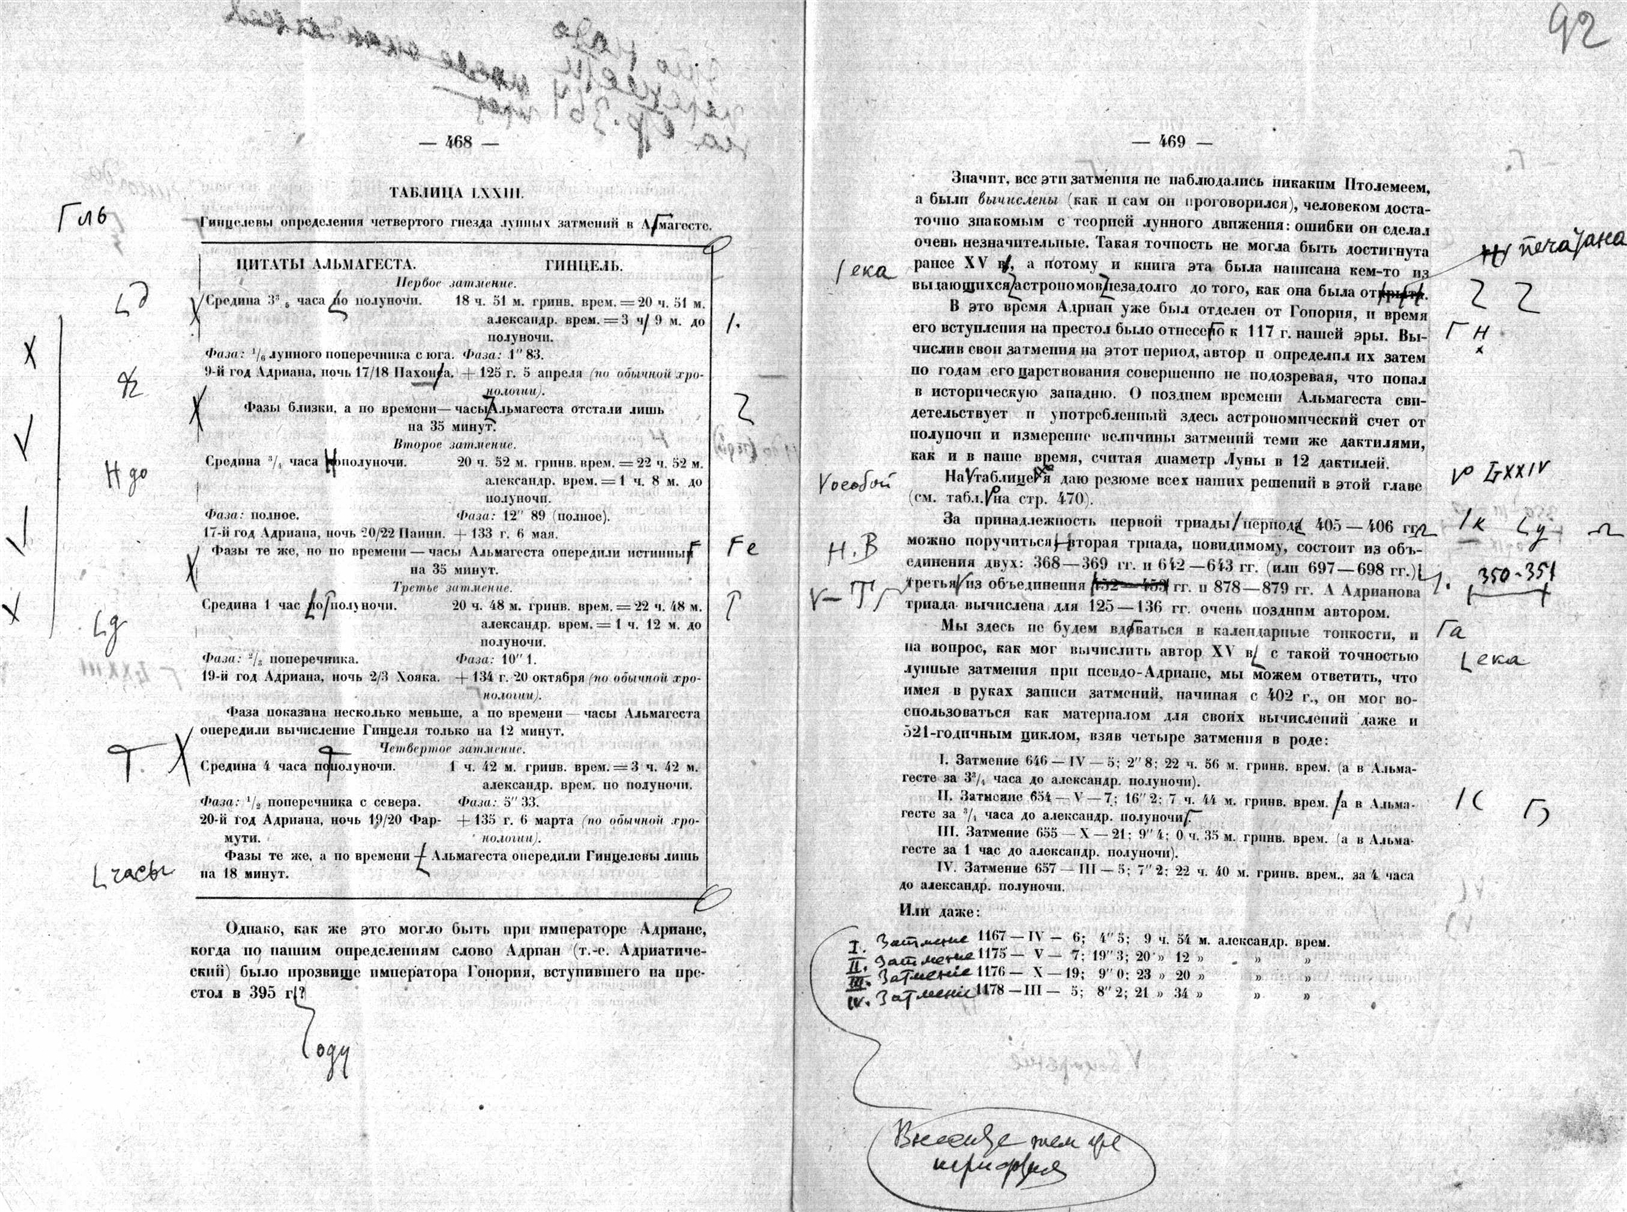 92
— 468 —
ТАБЛИЦА LXXIII.
Гинцелевы определения четвертого гнезда лунных затмений в Алмагесте.
Гль
ЦИТАТЫ АЛЬМАГЕСТА. ГИНЦЕЛЬ.
Первое затмение.
Средина 3³/₅ часа до полуночи. 18 ч. 51 м. гринв. врем. = 20 ч. 51 м.
александр. врем. = 3 ч. 9 м. до
полуночи.
Фаза: 1/6 лунного поперечника с юга. Фаза: 1″83.
9-й год Адриана, ночь 17/18 Пахонта. + 125 г. 5 апреля (по обычной хро-
нологии).
Фазы близки, а по времени — часы Альмагеста отстали лишь
на 35 минут.
Второе затмение.
Средина 3/4 часа пополуночи. 20 ч. 52 м. гринв. врем. = 22 ч. 52 м.
Н до
александр. врем. = 1 ч. 8 м. до
полуночи.
Фаза: полное. Фаза: 12″ 89 (полное).
17-й год Адриана, ночь 20/22 Паини. + 133 г. 6 мая.
Фазы те же, но по времени — часы Альмагеста опередили истинный
Fе
на 35 минут.
Третье затмение.
Средина 1 час до полуночи. 20 ч. 48 м. гринв. врем. = 22 ч. 48 м.
александр. врем. = 1 ч. 12 м. до
полуночи.
Фаза: 2/3 поперечника. Фаза: 10″1.
19-й год Адриана, ночь 2/3 Хояка. + 134 г. 20 октября (по обычной хро-
нологии).
Фаза показана несколько меньше, а по времени — часы Альмагеста
опередили вычисление Гинцеля только на 12 минут.
Четвертое затмение.
Средина 4 часа пополуночи. 1 ч. 42 м. гринв. врем. = 3 ч. 42 м.
александр. врем. по полуночи.
Фаза: 1/2 поперечника с севера. Фаза: 5″33.
20-й год Адриана, ночь 19/20 Фар- + 135 г. 6 марта (по обычной хро-
мути. нологии).
Фазы те же, а по времени — Альмагеста опередили Гинцелевы лишь
часы
на 18 минут.
Однако, как же это могло быть при императоре Адриане,
когда по нашим определениям слово Адриан (т.-е. Адриатиче-
ский) было прозвище императора Гонория, вступившего на пре-
стол в 395 г.?
оду
— 469 —
Значит, все эти затмения не наблюдались никаким Птолемеем,
а были вычислены (как и сам он проговорился), человеком доста-
точно знакомым с теорией лунного движения: ошибки он сделал
очень незначительные. Такая точность не могла быть достигнута
печатана
ранее XV в., а потому и книга эта была написана кем-то из
ека
выдающихся астрономов незадолго до того, как она была открыта.
В это время Адриан уже был отделен от Гонория, и время
его вступления на престол было отнесено к 117 г. нашей эры. Вы-
Г Н
числив свои затмения на этот период, автор и определил их затем
по годам его царствования совершенно не подозревая, что попал
в историческую западню. О позднем времени Альмагеста сви-
детельствует и употребленный здесь астрономический счет от
полуночи и измерение величины затмений теми же дактилями,
как и в наше время, считая диаметр Луны в 12 дактилей.
На таблице я даю резюме всех наших решений в этой главе
особой
LXXIV
(см. табл. на стр. 470).
За принадлежность первой триады периода 405 — 406 гг.
к
у
можно поручиться, вторая триада, повидимому, состоит из объ-
Н. В
единения двух: 368—369 гг. и 642—643 гг. (или 697—698 гг.)
третья из объединения 452—453 гг. и 878—879 гг. А Адрианова
350-351
триада вычислена для 125—136 гг. очень поздним автором.
Мы здесь не будем вдаваться в календарные тонкости, и
Га
на вопрос, как мог вычислить автор XV в. с такой точностью
ека
лунные затмения при псевдо-Адриане, мы можем ответить, что
имея в руках записи затмений, начиная с 402 г., он мог во-
спользоваться как материалом для своих вычислений даже и
521-годичным циклом, взяв четыре затмения в роде:
I. Затмение 646 — IV — 5; 2″8; 22 ч. 56 м. гринв. врем. (а в Альма-
гесте за 3³/₄ часа до александр. полуночи).
II. Затмение 654 — V — 7; 16″2; 7 ч. 44 м. гринв. врем. (а в Альма-
гесте за 3/4 часа до александр. полуночи
III. Затмение 655 — X — 21; 9″4; 0 ч. 35 м. гринв. врем. (а в Альма-
гесте за 1 час до александр. полуночи).
IV. Затмение 657 — III — 5; 7″2; 22 ч. 40 м. гринв. врем., за 4 часа
до александр. полуночи.
Или даже:
I. Затмение 1167 — IV — 6; 4″5; 9 ч. 54 м. александр. врем.
II. Затмение 1175 — V — 7; 19″3; 20 » 12 » » »
III. Затмение 1176 — X — 19; 9″0; 23 » 20 » » »
IV. Затмение 1178 — III — 5; 8″2; 21 » 34 » » »